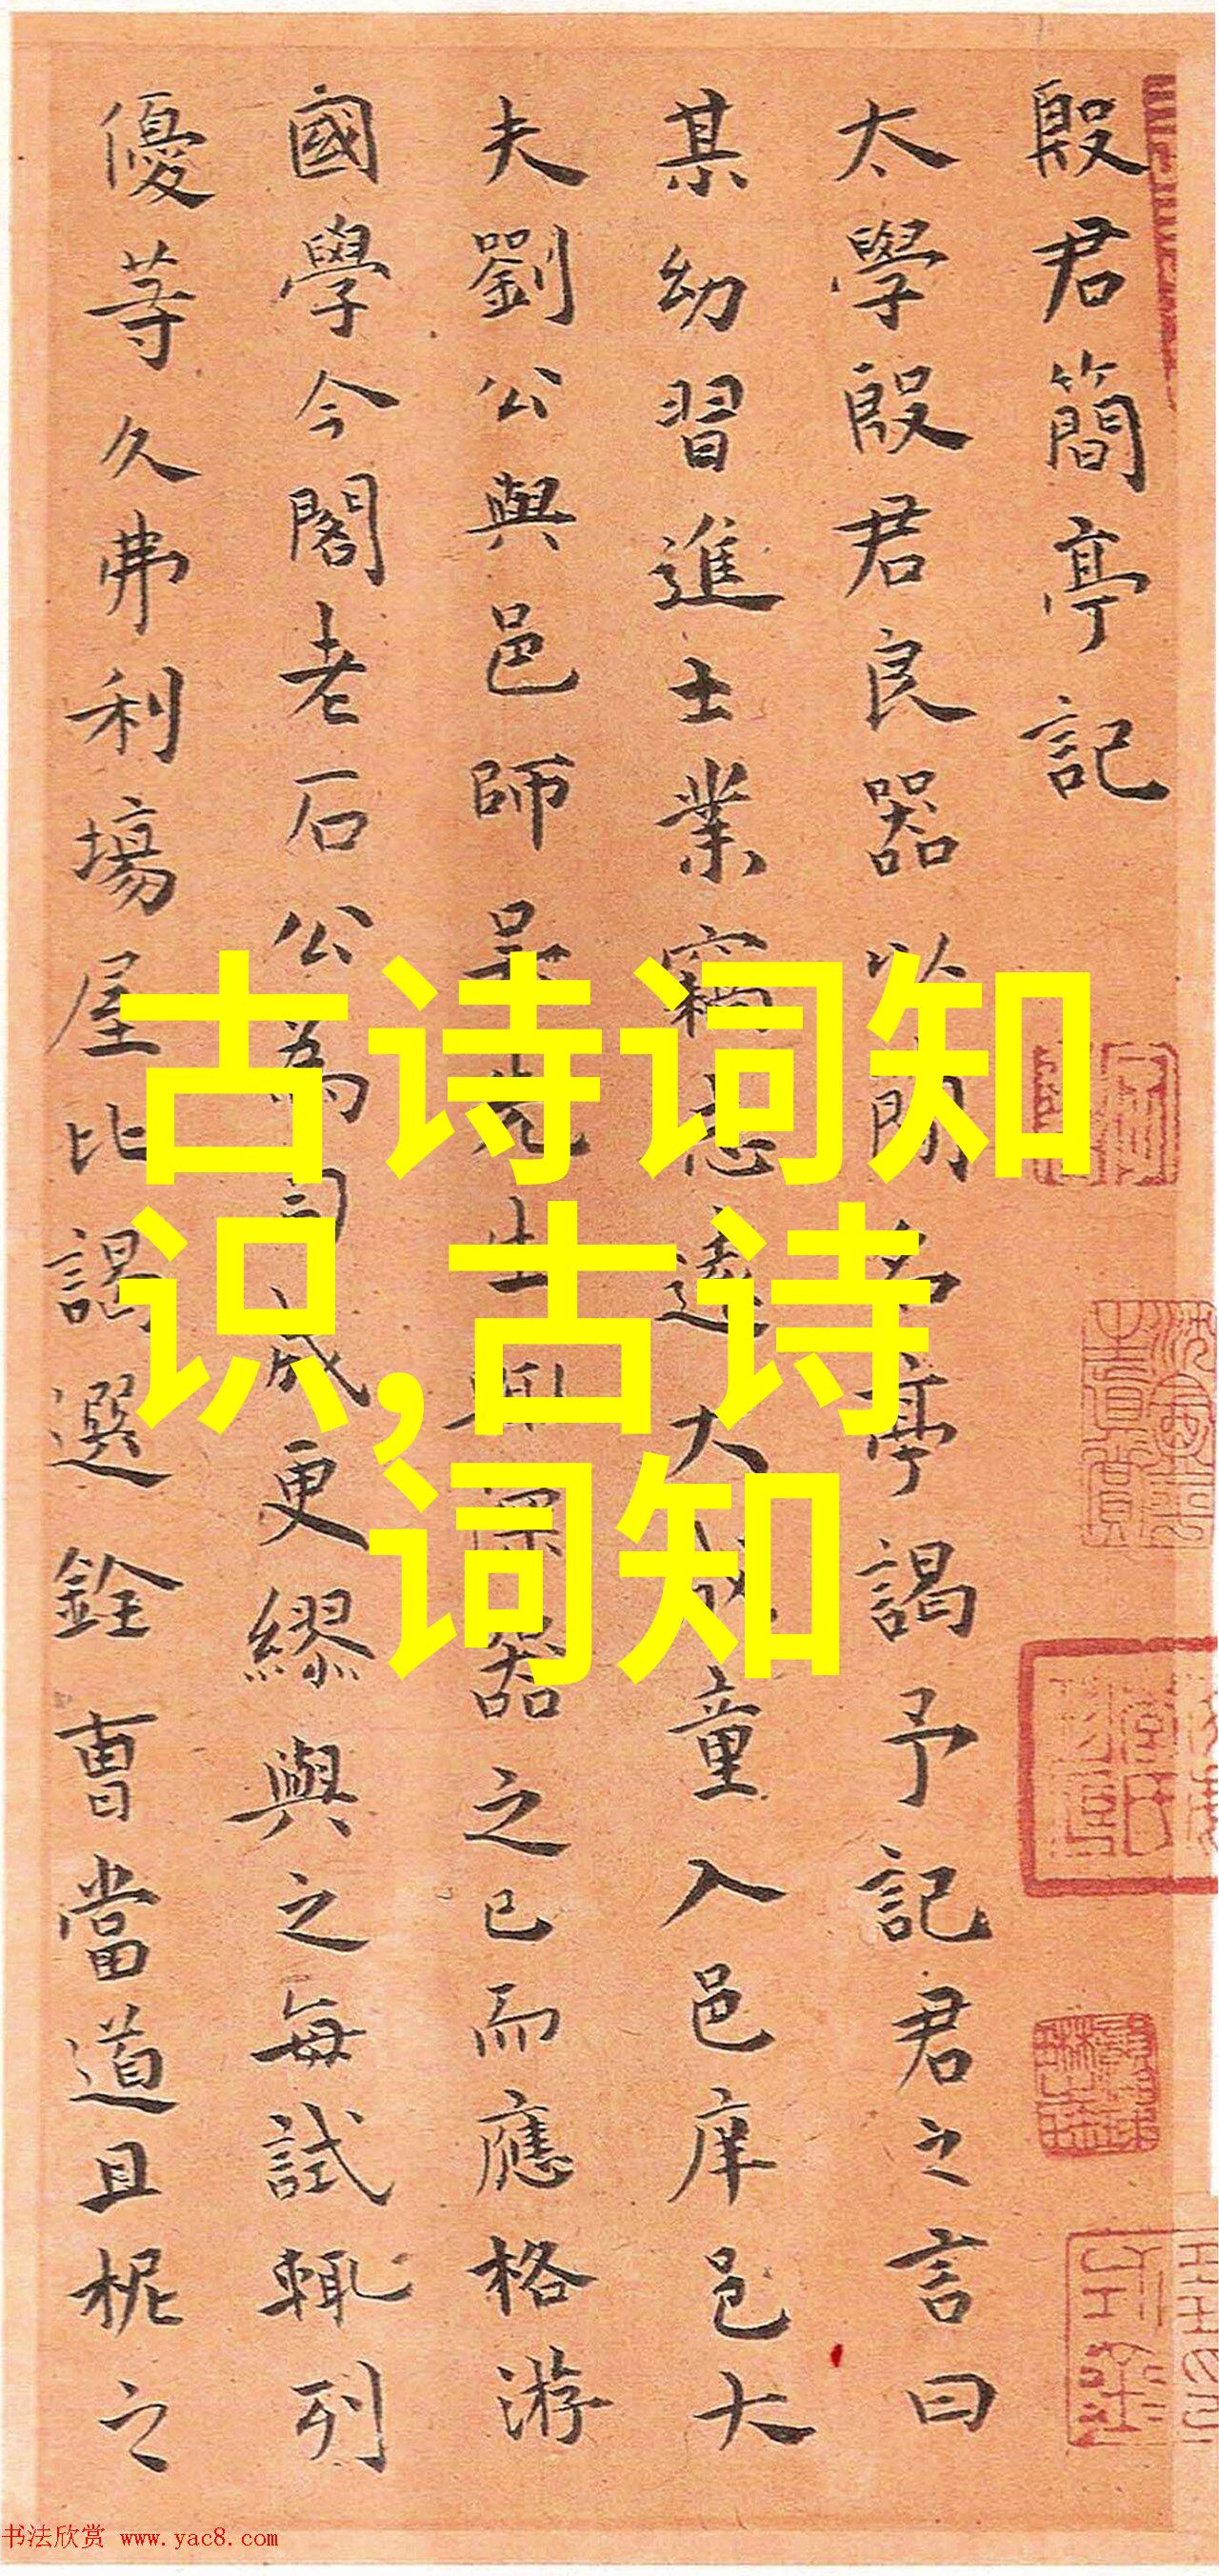 殷君簡亭記
太學殷君良器以簡名亭謁予記君之言曰
某幼習進士業竊志遠大成童入邑庠邑大
夫劉公與邑師吳先生興深器之已而應格游
國學今閣老石公為司成更繆與之每試輒列
優等久弗利場屋比謁選銓曹當道且柅之
古诗词知
识,古诗
词知
书法欣赏 www.yac8.com